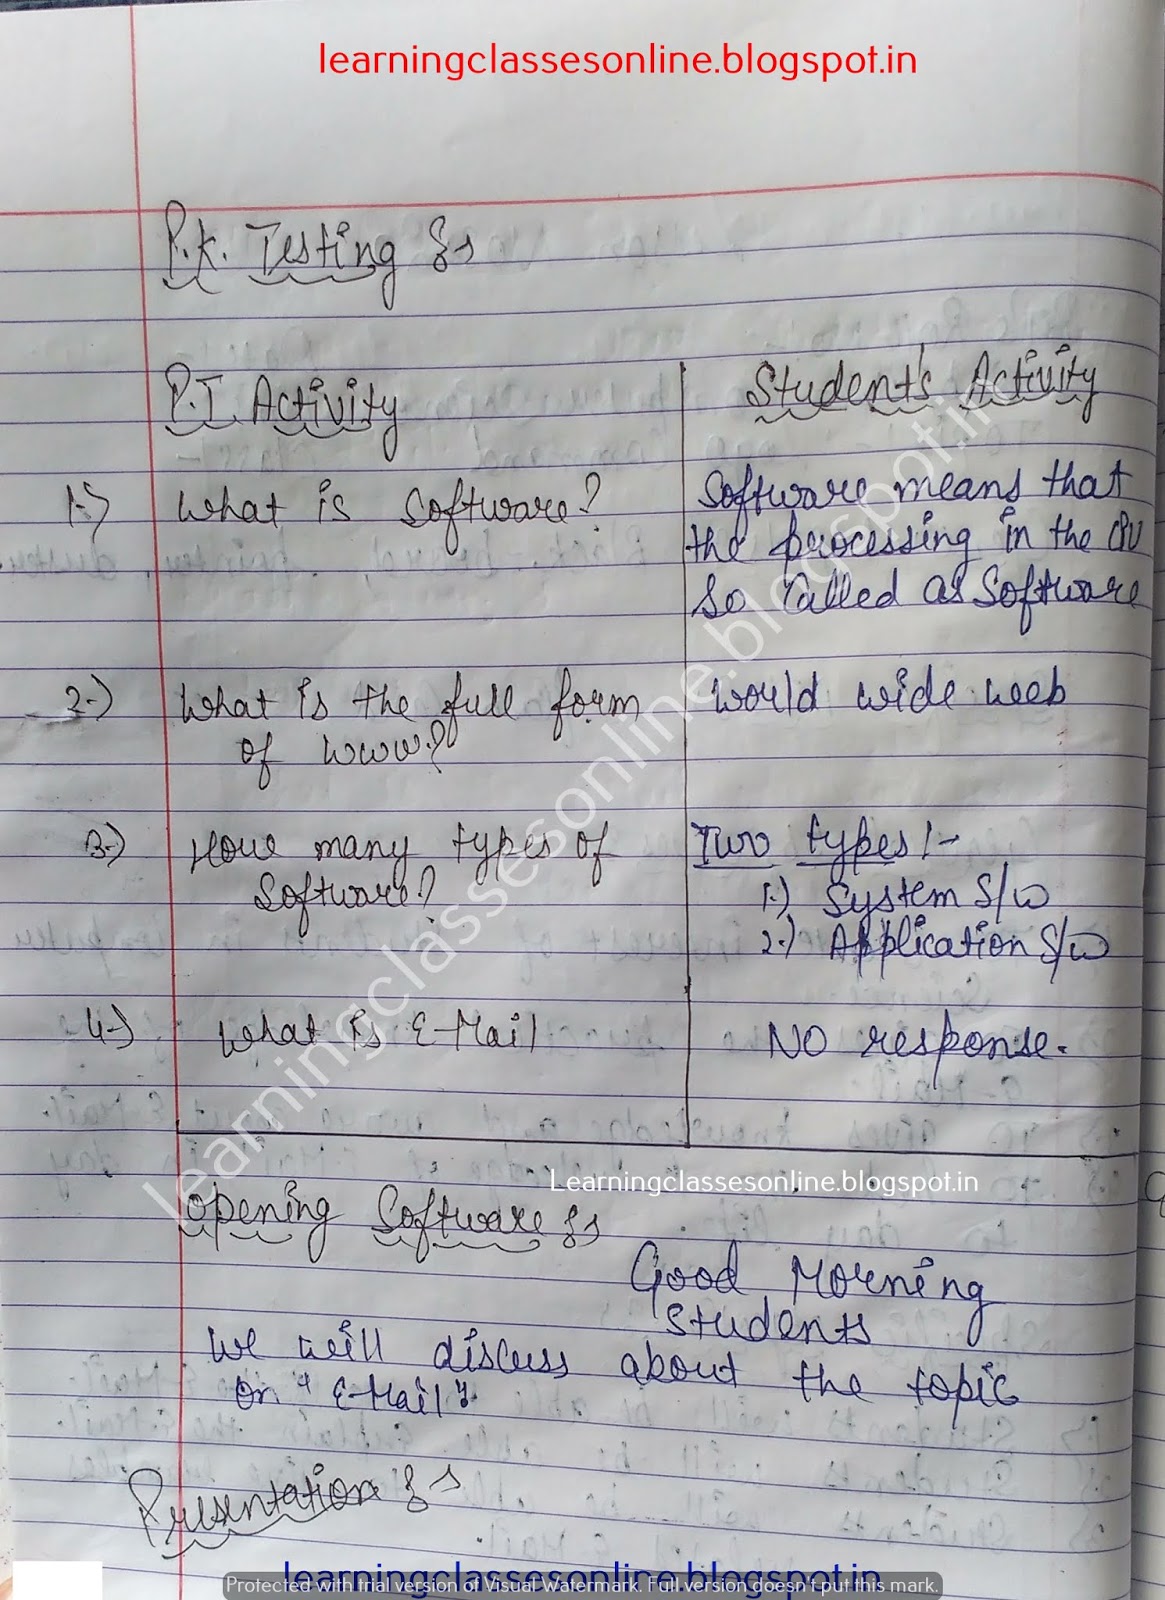 learningclassesonline.blogspot.in
P.K. Testing :-
P.T. Activity
Student's Activity
1.) What is Software?
Software means that
the processing in the CPU
so called as Software
2.) What is the full form
of WWW?
World wide web
3.) How many types of
Software?
Two types :-
1.) System S/W
2.) Application S/W
4.) What is E-Mail
NO response.
learningclassesonline.blogspot.in
Learningclassesonline.blogspot.in
Opening Software :-
Good Morning
Students
We will discuss about the topic
on "E-Mail".
Presentation :-
learningclassesonline.blogspot.in
Protected with trial version of Visual Watermark. Full version doesn't put this mark.